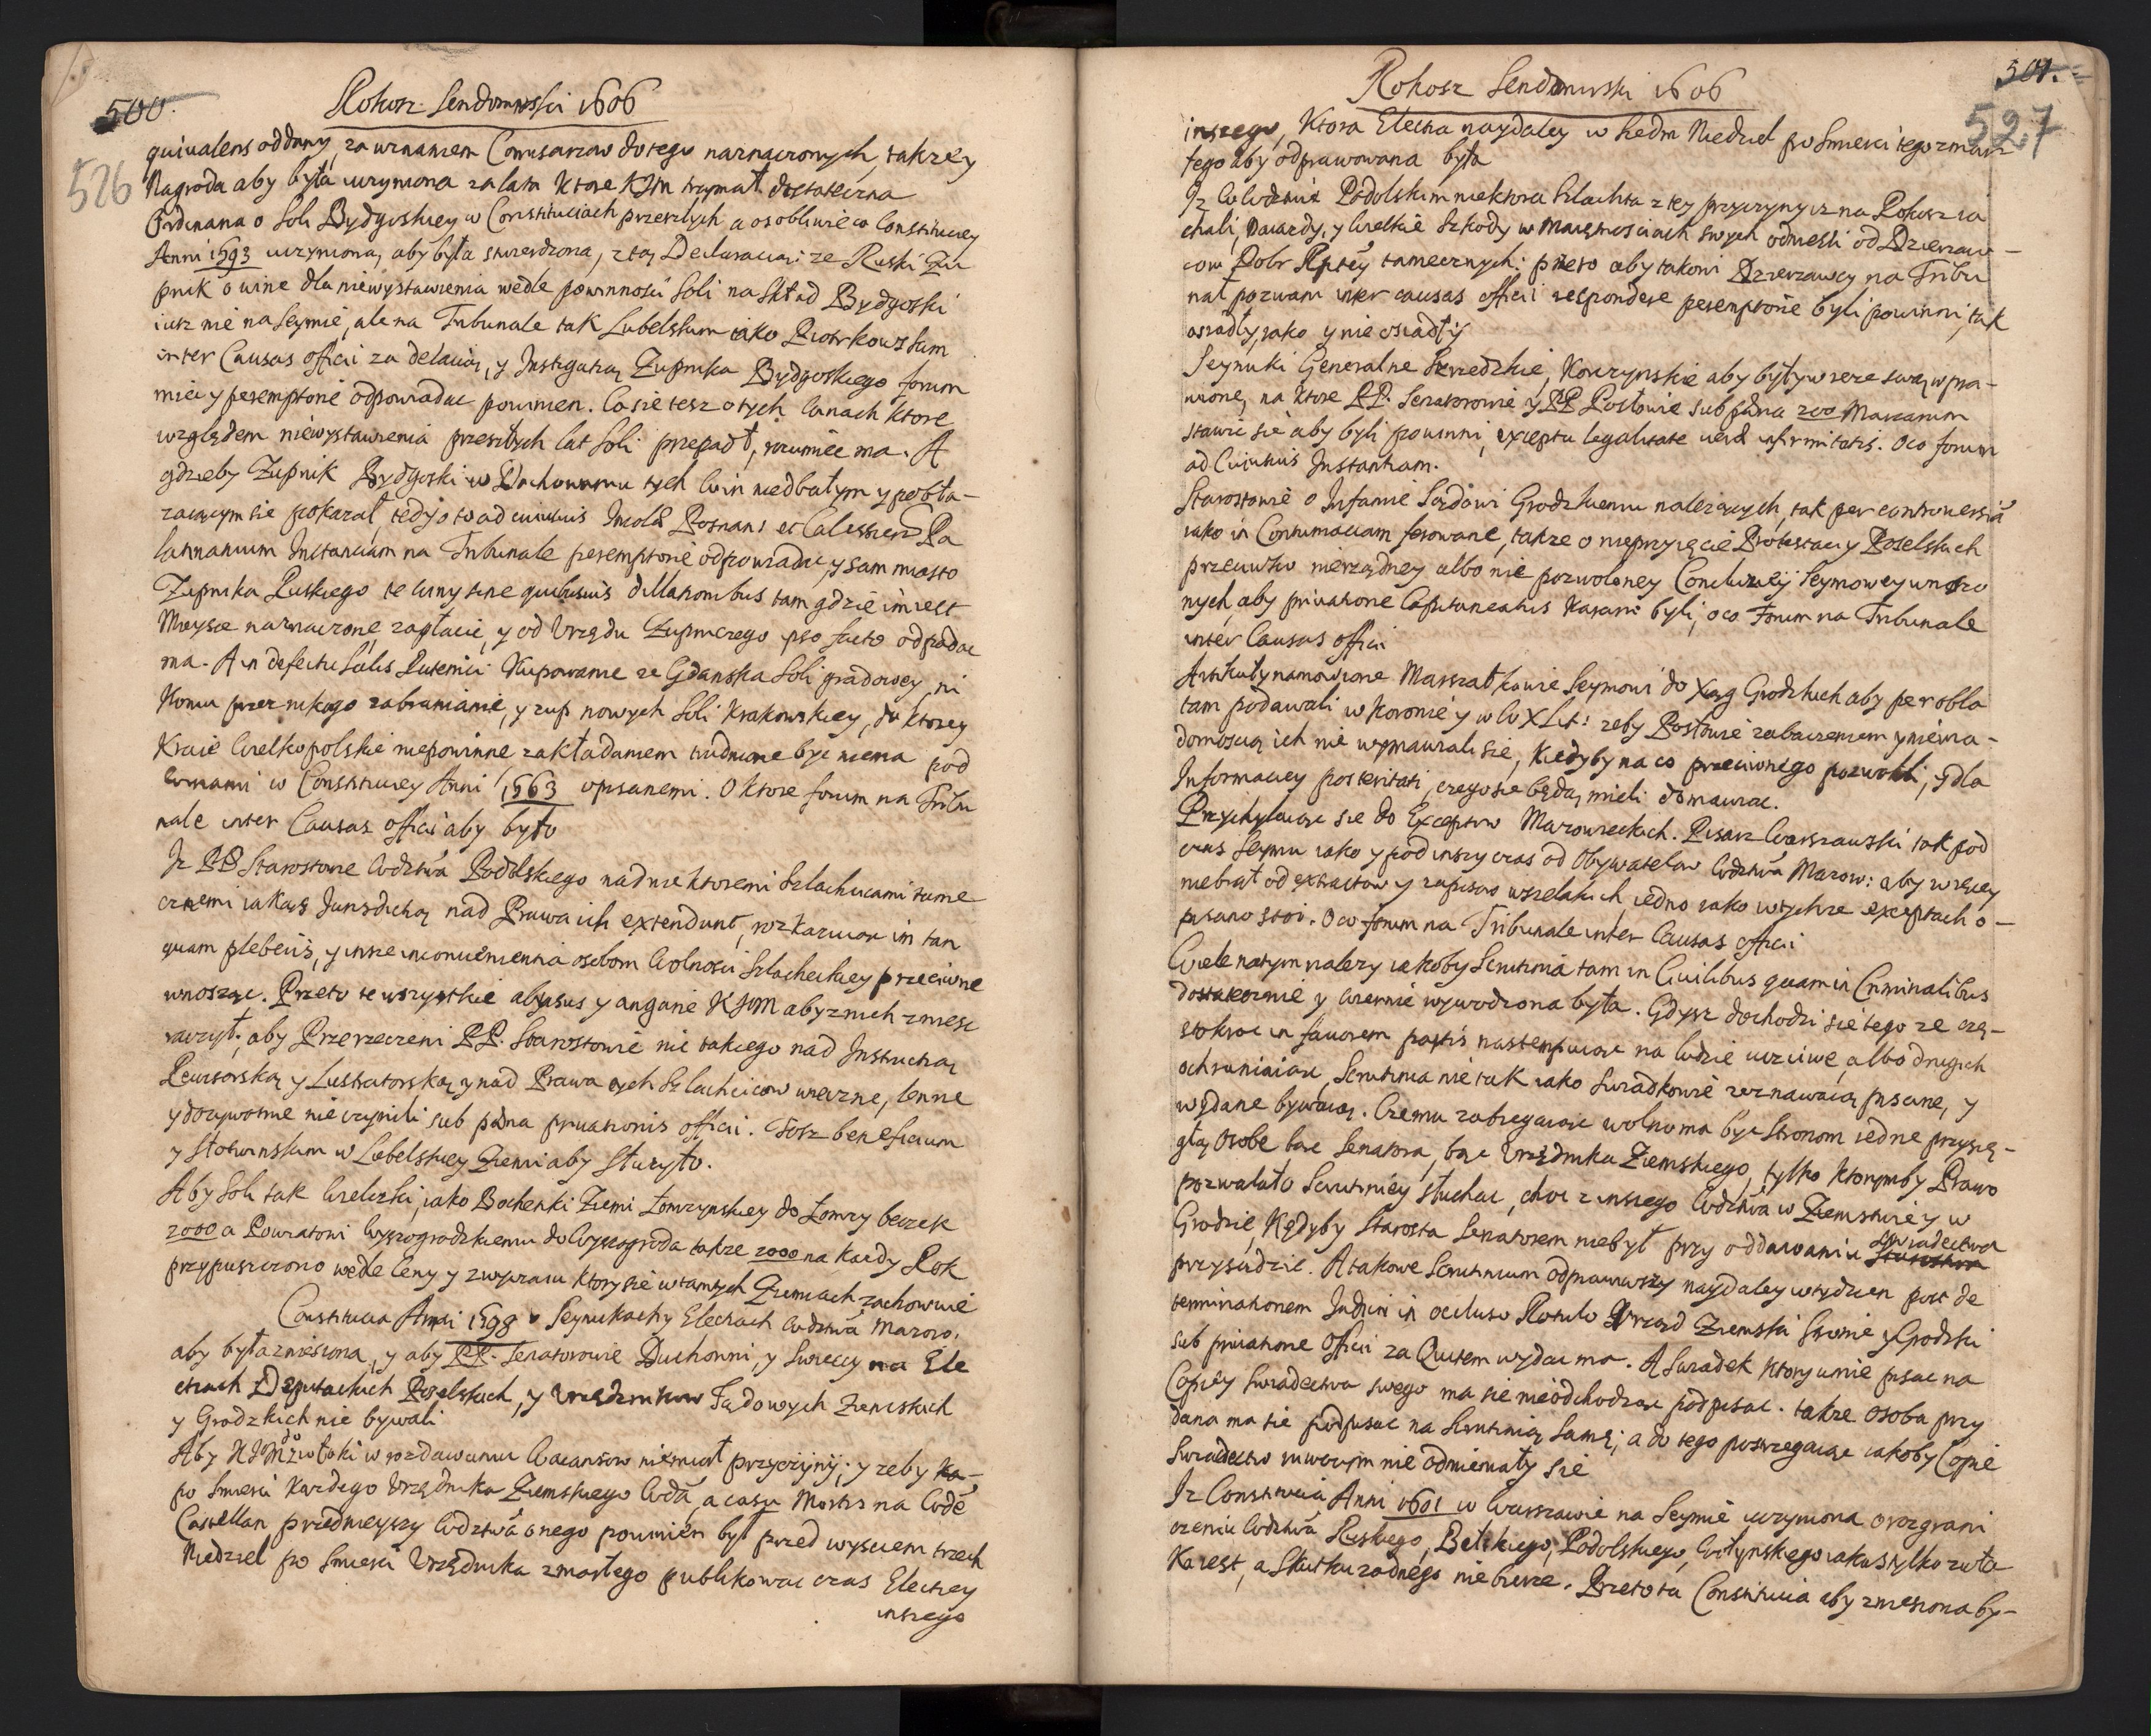 500.
526
Rokosz Sendomirski 1606
quiualens oddany, za uznaniem Comisarzow do tego naznaczonych, takze y
Nagroda aby była uczyniona za lata ktore KJM trzymał dostateczna
Ordinatia o Soli Bydgoskiey w Constituciach przeszłych a osobliwie w Constituciey
Anni 1593 uczyniona, aby była stwierdzona, z tą Declaracią: ze Ruski Zu
pnik o wine dla niewystawienia wedle powinnosci Soli na Skład Bydgoski
iusz nie na Seymie, ale na Tribunale tak Lubelskim iako Piotrkowskim
inter Causas officii za delacią, y Instigatią Zupnika Bydgoskiego forum
miec y peremptorie odpowiadac powinien. Co sie tesz o tych winach ktore
względem niewystawienia przeszłych lat Soli przepadł, rozumiec ma. A
gdzieby Zupnik Bydgoski w Dochowaniu tych win niedbałym y pobła-
zaiącym sie pokazał tedy o to ad cuiusuis Incolæ Posnan: et Calissien: Pa
latinatuum Instantiam na Tribunale peremptorie odpowiadac, y sam miasto
Zupnika Ruskiego te winy sine quibusuis dillationibus tam gdzie im iest
Mieysce naznaczone, zapłacic, y od Urzędu Zupniczego ipso facto odpadac
ma. A in defectu Salis Rutenici Kupowanie ze Gdanska Soli gradowey, ni
Komu przez nikogo zabraniane, y zup nowych Soli Krakowskiey, do ktorey
Kraie Wielkopolskie niepowinne zakładaniem trudnione byc niema pod
winami w Constituciey Anni 1563 opisanemi. O ktore forum na Tribu
nale inter Causas officii aby było
Iz PP Starostowie Wdztwa Podolskiego nad niektoremi Szlachcicami tame
cznemi iakąś Jurisdictią nad Prawa ich extendunt, rozkazuiąc im tan
quam plebeis, y insze inconuenientia osobom Wolnosci Szlacheckiey przeciwne
wnosząc. Przeto te wszystkie abusus y angarie KJM aby z nich zniesc
raczył; aby Przerzeczeni PP. Starostowie nic takiego nad Instructią
Reuisorską y Lustratorską y nad Prawa tych Szlachcicow wieczne, lenne
y dozywotne nie czynili sub pæna priuationis officii. Tosz beneficium
y Stowinskim w Lubelskiey Ziemi aby słuzyło.
Aby Soli tak Wieliczki, iako Bochenki Ziemi Łomzynskiey do Łomzy beczek
2000 a Powiatowi Wyszogrodzkiemu do Wyszogroda takze 2000 na kazdy Rok
przypuszczono wedle Ceny y zwyczaiu ktory sie w tamtych Ziemiach zachowuie
Constitucia Anni 1598 o Seymikach y Electiach Wdztwa Mazow.
aby była zniesiona, y aby PP. Senatorowie Duchowni, y Swieccy na Ele
ctiach Deputackich Poselskich, y Urzednikow Sądowych Ziemskich
y Grodzkich nie bywali
Aby KJM do zwłoki w rozdawaniu Wacansow niemiał przyczyny; y zeby
po Smierci kazdego Urzędnika Ziemskiego Wda, a casu Mortis na Wde
Castellan przednieyszy Wdztwa onego powinien był przed wysciem trzech
Niedziel po Smierci Urzędnika zmarłego publikowac czas Electiey
inszego
501.
527
Rokosz Sendomirski 1606
inszego, Ktora Electia naydaley w siedm Niedziel po Smierci tego zmar
łego aby odprawowana była
Iz w Wdztwie Podolskim niektora Szlachta z tey przyczyny isz na Rokosz ia
chali, Naiazdy, y wielkie Szkody w Maiętnosciach swych odniesli od Dzierzaw-
cow Dobr Rptey tamecznych: przeto aby takowi Dzierzawcy na Tribu
nał pozwani inter causas officii respondere peremptorie byli powinni, tak
osiadły, iako y nie osiadły
Seymiki Generalne Srzedzkie, Korczynskie aby były w reze swą wpra-
wione, na ktore PP. Senatorowie y PP Posłowie sub pæna 200 Marcarum
stawic sie aby byli powinni, excepta legalitate veræ infirmitatis. Oco forum
ad Cuiusuis Instantiam.
Starostowie o Infamie Sądowi Grodzkiemu nalezących, tak per controuersiā
iako in Contumaciam ferowane, takze o nieprzyięcie Protestaciy Poselskich
przeciwko nierządney albo nie pozwoloney Conclusiey Seymowey wnoszo
nych, aby priuatione Capitaneatus karani byli, oco Forum na Tribunale
inter Causas officii
Artikuły namowione Marszałkowie Seymowi do Xiąg Grodzkich aby per obla
tam podawali w Koronie y w W X Lit: zeby Posłowie zabaczeniem y niewia-
domoscią ich nie wymawiali sie, kiedyby na co przeciwnego pozwolili, y dla
Informaciey posteritati, czego sie będą mieli domawiac.
Przychylaiąc sie do Exceptow Mazowieckich. Pisarz Warszawski tak pod
czas Seymu iako y pod inszy czas od Obywatelow Wdztwa Mazow: aby więcey
niebrał od extractow y zapisow wszelakich, iedno iako w tychze exceptach o-
pisano stoi. Oco forum na Tribunale inter Causas officii
Wiele na tym nalezy iakoby Scrutinia tam in Ciuilibus quam in Criminalibus
dostatecznie y wiernie wywodzona była. Gdysz dochodzi sie tego ze czę-
stokroc in fauorem partis nastempuiąc na ludzie uczciwe, albo drugich
ochraniaiąc, Scrutinia nie tak iako Swiadkowie zeznawaią pisane, y
wydane bywaią. Czemu zabiegaiąc wolno ma byc Stronom iedne przysię-
głą Osobe bąc Senatora, bąc Urzędnika Ziemskiego, tylko ktorymby Prawo
pozwalało Scrutiniey słuchac, choc z inszego Wdztwa w Ziemstwie y w
Grodzie, Kędyby Starosta Senatorem niebył przy oddawaniu swiadectwa
przysadzic. A takowe Scrutinium odprawiwszy naydaley w tydzien post de
terminationem Iudicii in occluso Rotulo Urząd Ziemski Ssownie y Grodzki
sub priuatione Officii za Quitem wydac ma. A Swiadek ktory umie pisac na
Copiey Swiadectwa swego ma sie nieodchodząc podpisac. takze Osoba przy
dana ma sie podpisac na Scrutinią Samę; a do tego postrzegaiąc iakoby Copie
Swiadectw w niwczym nie odmieniały sie
Iz Constitucia Anni 1601 w Warszawie na Seymie uczyniona o rozgrani
czeniu Wdztwa Ruskiego, Bełskiego, Podolskiego, Wołynskiego iakas tylko zwło
ka iest, a Skutku zadnego nie bierze. Przeto ta Constitucia aby zniesiona by-